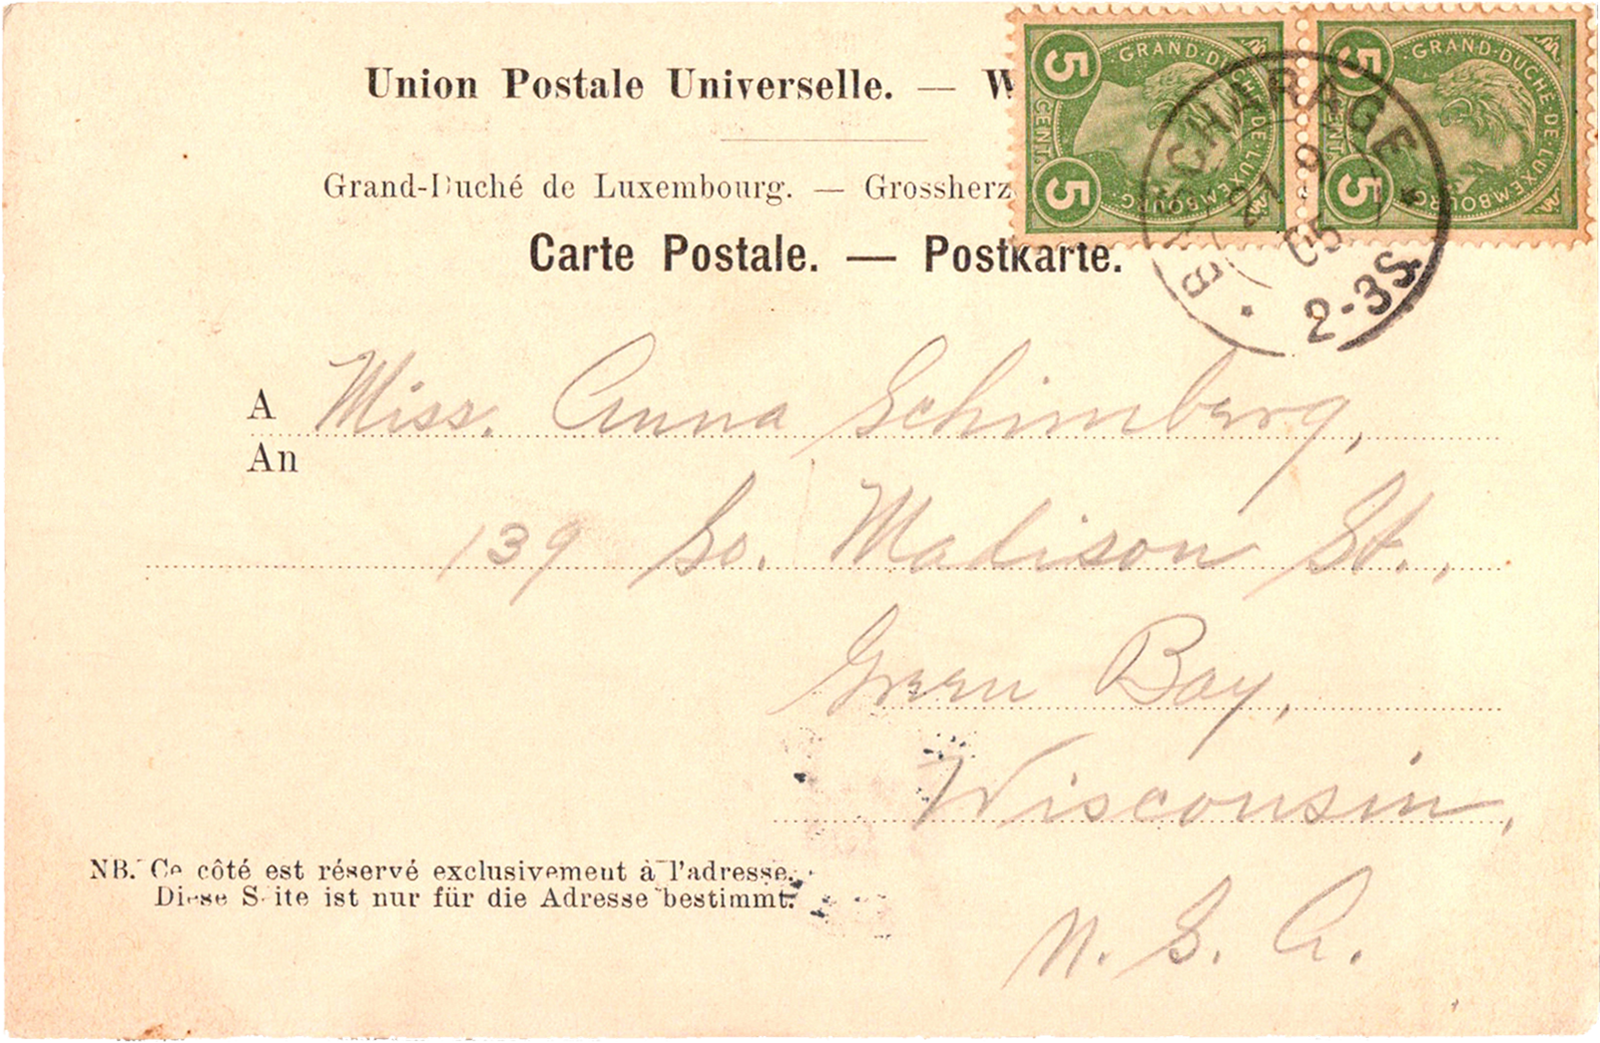 Union Postale Universelle. — W
Grand-Duché de Luxembourg. — Grossherz
Carte Postale. — Postkarte.
5 GRAND-DUCHÉ-DE-LUXEMBOURG 5
CENT.
5 GRAND-DUCHÉ-DE-LUXEMBOURG 5
CENT.
BASCHARAGE
27 9
05
2-3S
A Miss. Anna Schimberg,
An
139 So. Madison St.,
Green Bay,
Wisconsin,
U. S. A.
NB. Ce côté est réservé exclusivement à l'adresse.
Diese Seite ist nur für die Adresse bestimmt.